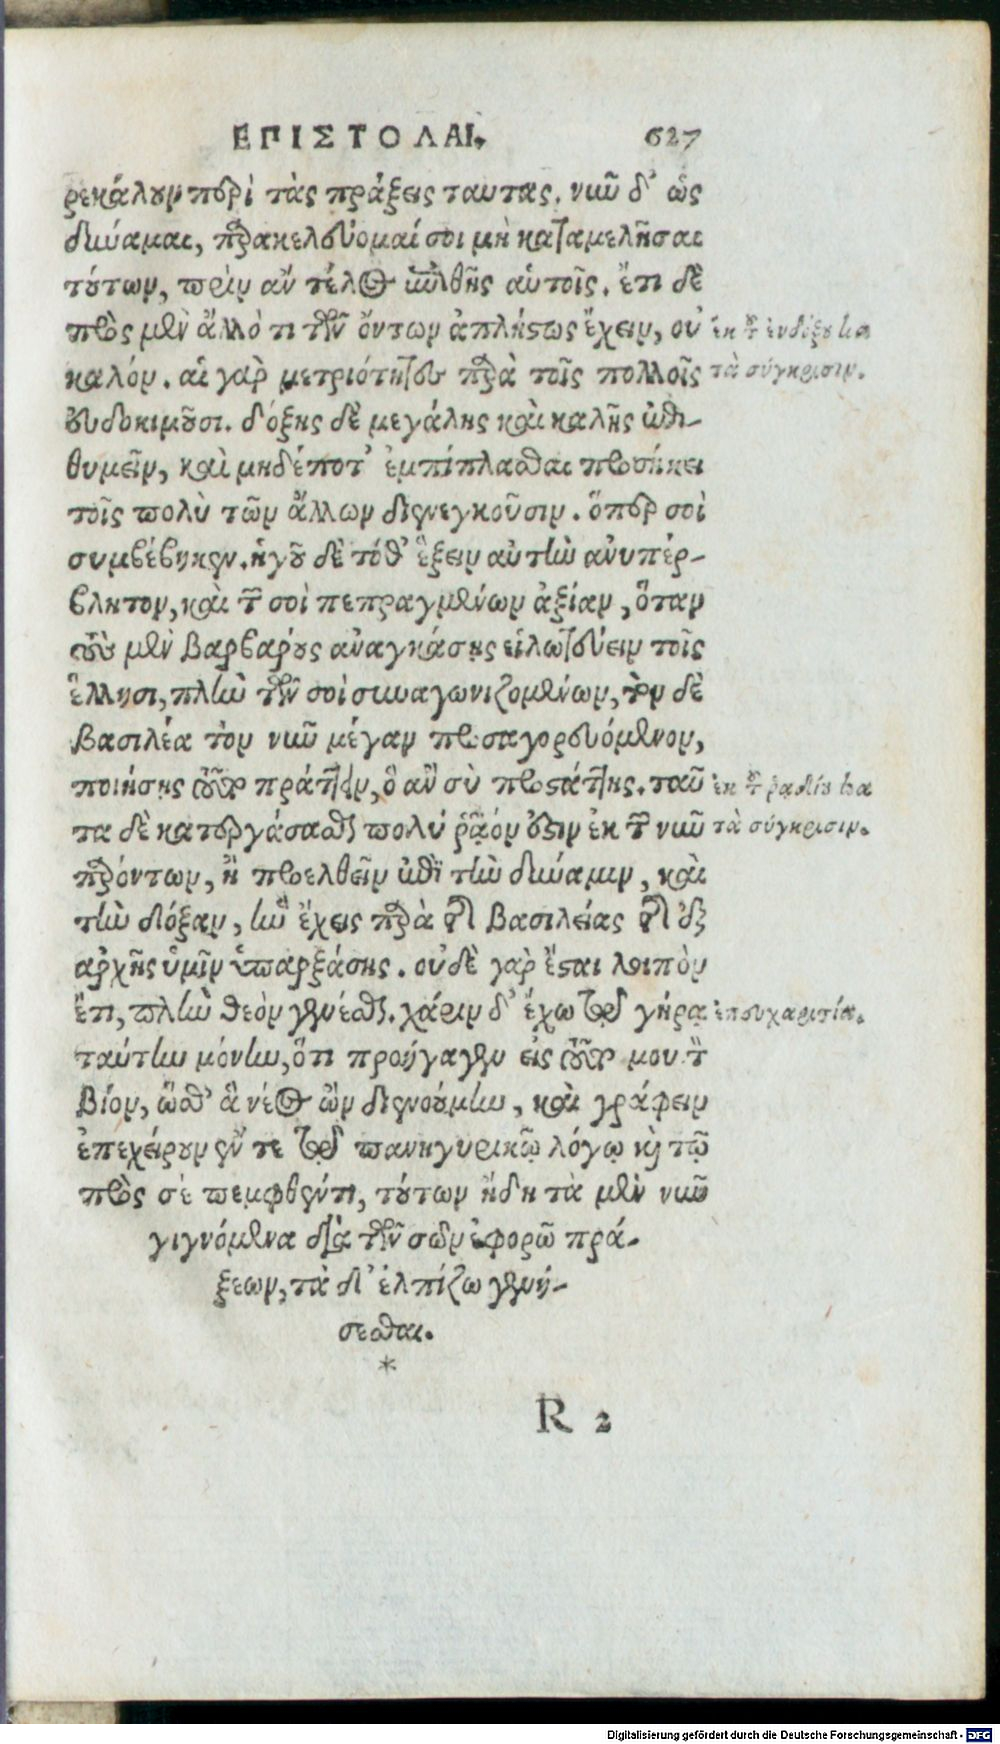 ΕΠΙΣΤΟΛΑΙ. 627
ρεκάλουν περὶ τὰς πράξεις ταύτας. νῦν δ' ὡς
δύναμαι, παρακελεύομαί σοι μὴ καταμελῆσαι
τούτων, πρὶν ἂν τέλος ἐπιθῇς αὐτοῖς. ἔτι δὲ
πρὸς μὲν ἄλλό τι τῶν ὄντων ἀπλήστως ἔχειν, οὐ
καλόν. αἱ γὰρ μετριότητες παρὰ τοῖς πολλοῖς
εὐδοκιμοῦσι. δόξης δὲ μεγάλης καὶ καλῆς ἐπι-
θυμεῖν, καὶ μηδέποτ' ἐμπίπλασθαι προσήκει
τοῖς πολὺ τῶν ἄλλων διενεγκοῦσιν. ὅπερ σοὶ
συμβέβηκεν. ἡγοῦ δὲ τόθ' ἕξειν αὐτὴν ἀνυπέρ-
βλητον, καὶ τῶν σοὶ πεπραγμένων ἀξίαν, ὅταν
τοὺς μὲν βαρβάρους ἀναγκάσῃς εἱλωτεύειν τοῖς
ἕλλησι, πλὴν τῶν σοὶ συναγωνιζομένων, τὸν δὲ
βασιλέα τὸν νῦν μέγαν προσαγορευόμενον,
ποιήσῃς τοῦτο πράττειν, ὃ ἂν σὺ προστάττῃς. ταῦ
τα δὲ κατεργάσασθαι πολύ ῥᾷόν ἐστιν ἐκ τῶν νῦν
παρόντων, ἢ προελθεῖν ἐπὶ τὴν δύναμιν, καὶ
τὴν δόξαν, ἣν ἔχεις παρὰ τῆς βασιλείας τῆς ἐξ
ἀρχῆς ὑμῖν ὑπαρξάσης. οὐδὲ γὰρ ἔσται λοιπὸν
ἔτι, πλὴν θεὸν γενέσθαι. χάριν δ' ἔχω τῷ γήρᾳ
ταύτην μόνην, ὅτι προήγαγεν εἰς τοῦτο μου τὸν
βίον, ὥσθ' ἃ νέος ὢν διενοούμην, καὶ γράφειν
ἐπεχείρουν ἔν τε τῷ πανηγυρικῷ λόγῳ καὶ τῷ
πρὸς σὲ πεμφθέντι, τούτων ἤδη τὰ μὲν νῦν
γιγνόμενα διὰ τῶν σῶν ἐφορῶ πρά-
ξεων, τὰ δ' ἐλπίζω γενή-
σεσθαι.
*
R 2
ἐκ τοῦ ἐνδόξου κα
τὰ σύγκρισιν.
ἐκ τοῦ ῥᾳδίου κα
τὰ σύγκρισιν.
ἐπευχαριστία.
Digitalisierung gefördert durch die Deutsche Forschungsgemeinschaft - DFG